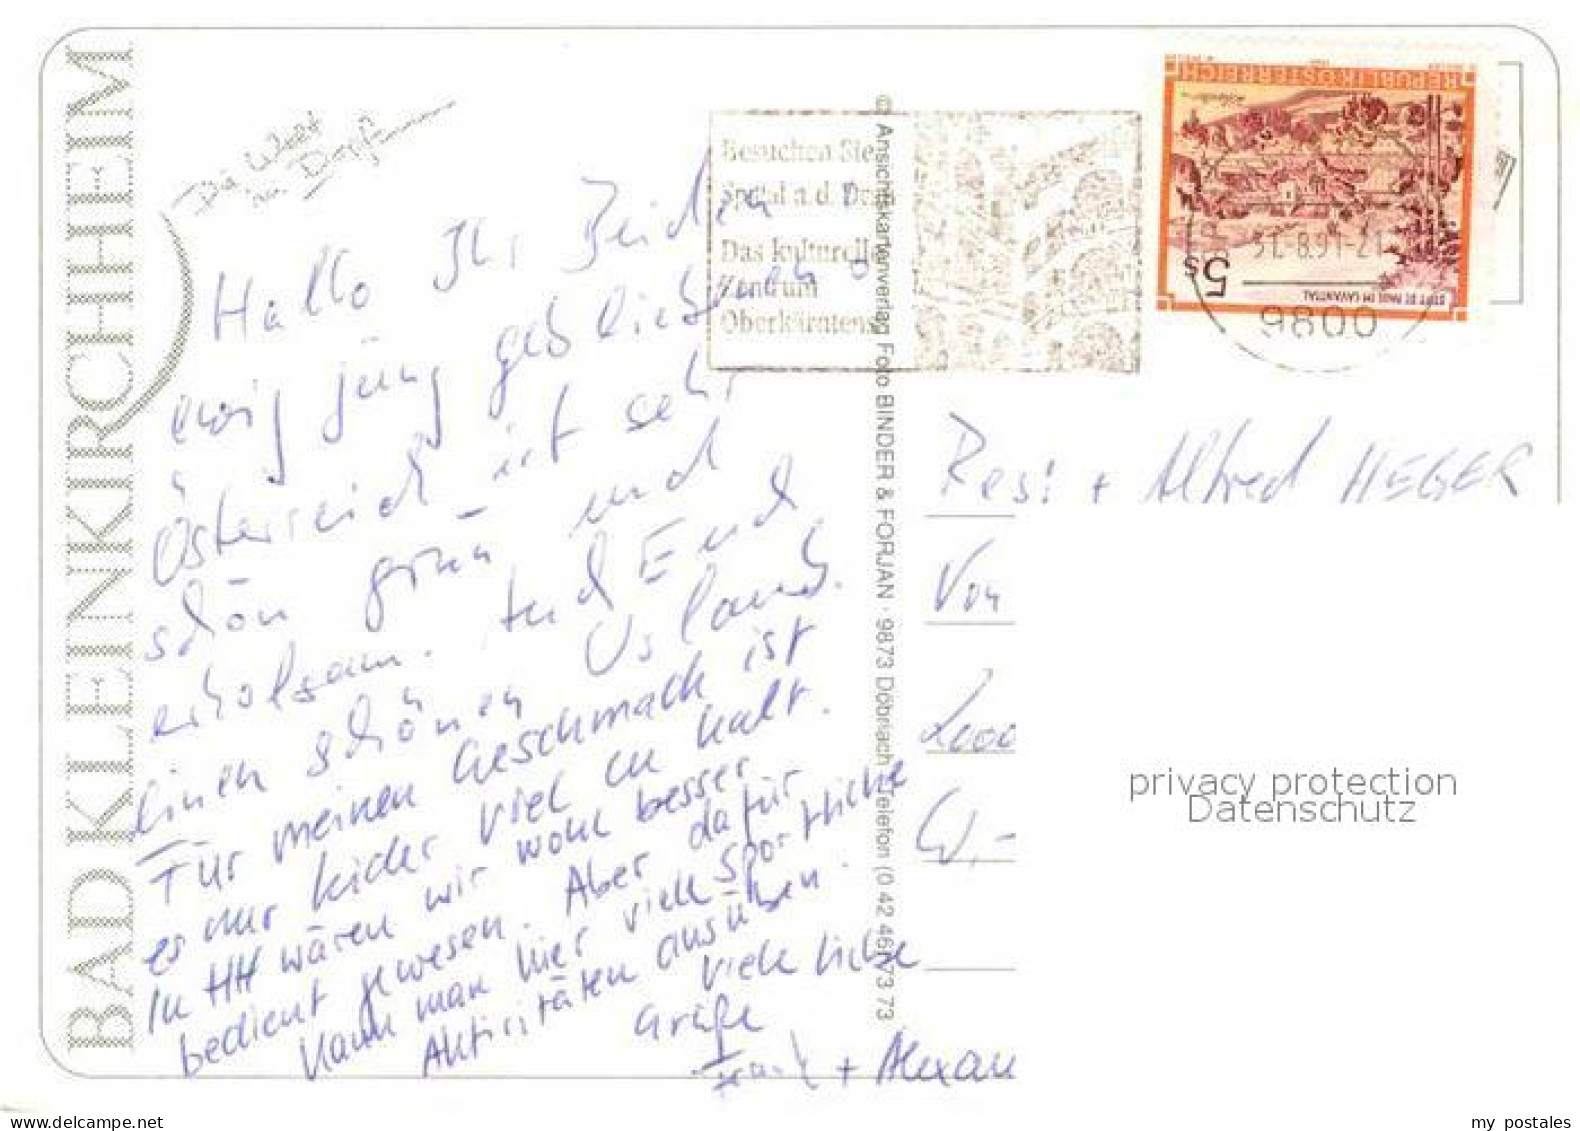 BAD KLEINKIRCHHEIM
Die Welt
im Dorf
Hallo Ihr Beiden
ewig jung gebliebenen
Österreich ist sehr
schön grün und
erholsam. Und End
einen schönen Urlaub.
Für meinen Geschmack ist
es nur leider viel zu kalt.
In HH wären wir wohl besser
bedient gewesen. Aber dafür
kann man hier viele sportliche
Aktivitäten ausüben.
viele liebe
Grüße
Frank + Alexan
© Ansichtskartenverlag Foto BINDER & FORJAN · 9873 Döbriach · Telefon (0 42 46) 73 73
Besuchen Sie
Spittal a. d. Drau
Das kulturelle
Zentrum
Oberkärntens
REPUBLIK ÖSTERREICH
5 S
STIFT ST. PAUL IM LAVANTTAL
31.-8.91-21
9800
Resi + Alfred HEGER
Von
2000
W.-
privacy protection
Datenschutz
my postales